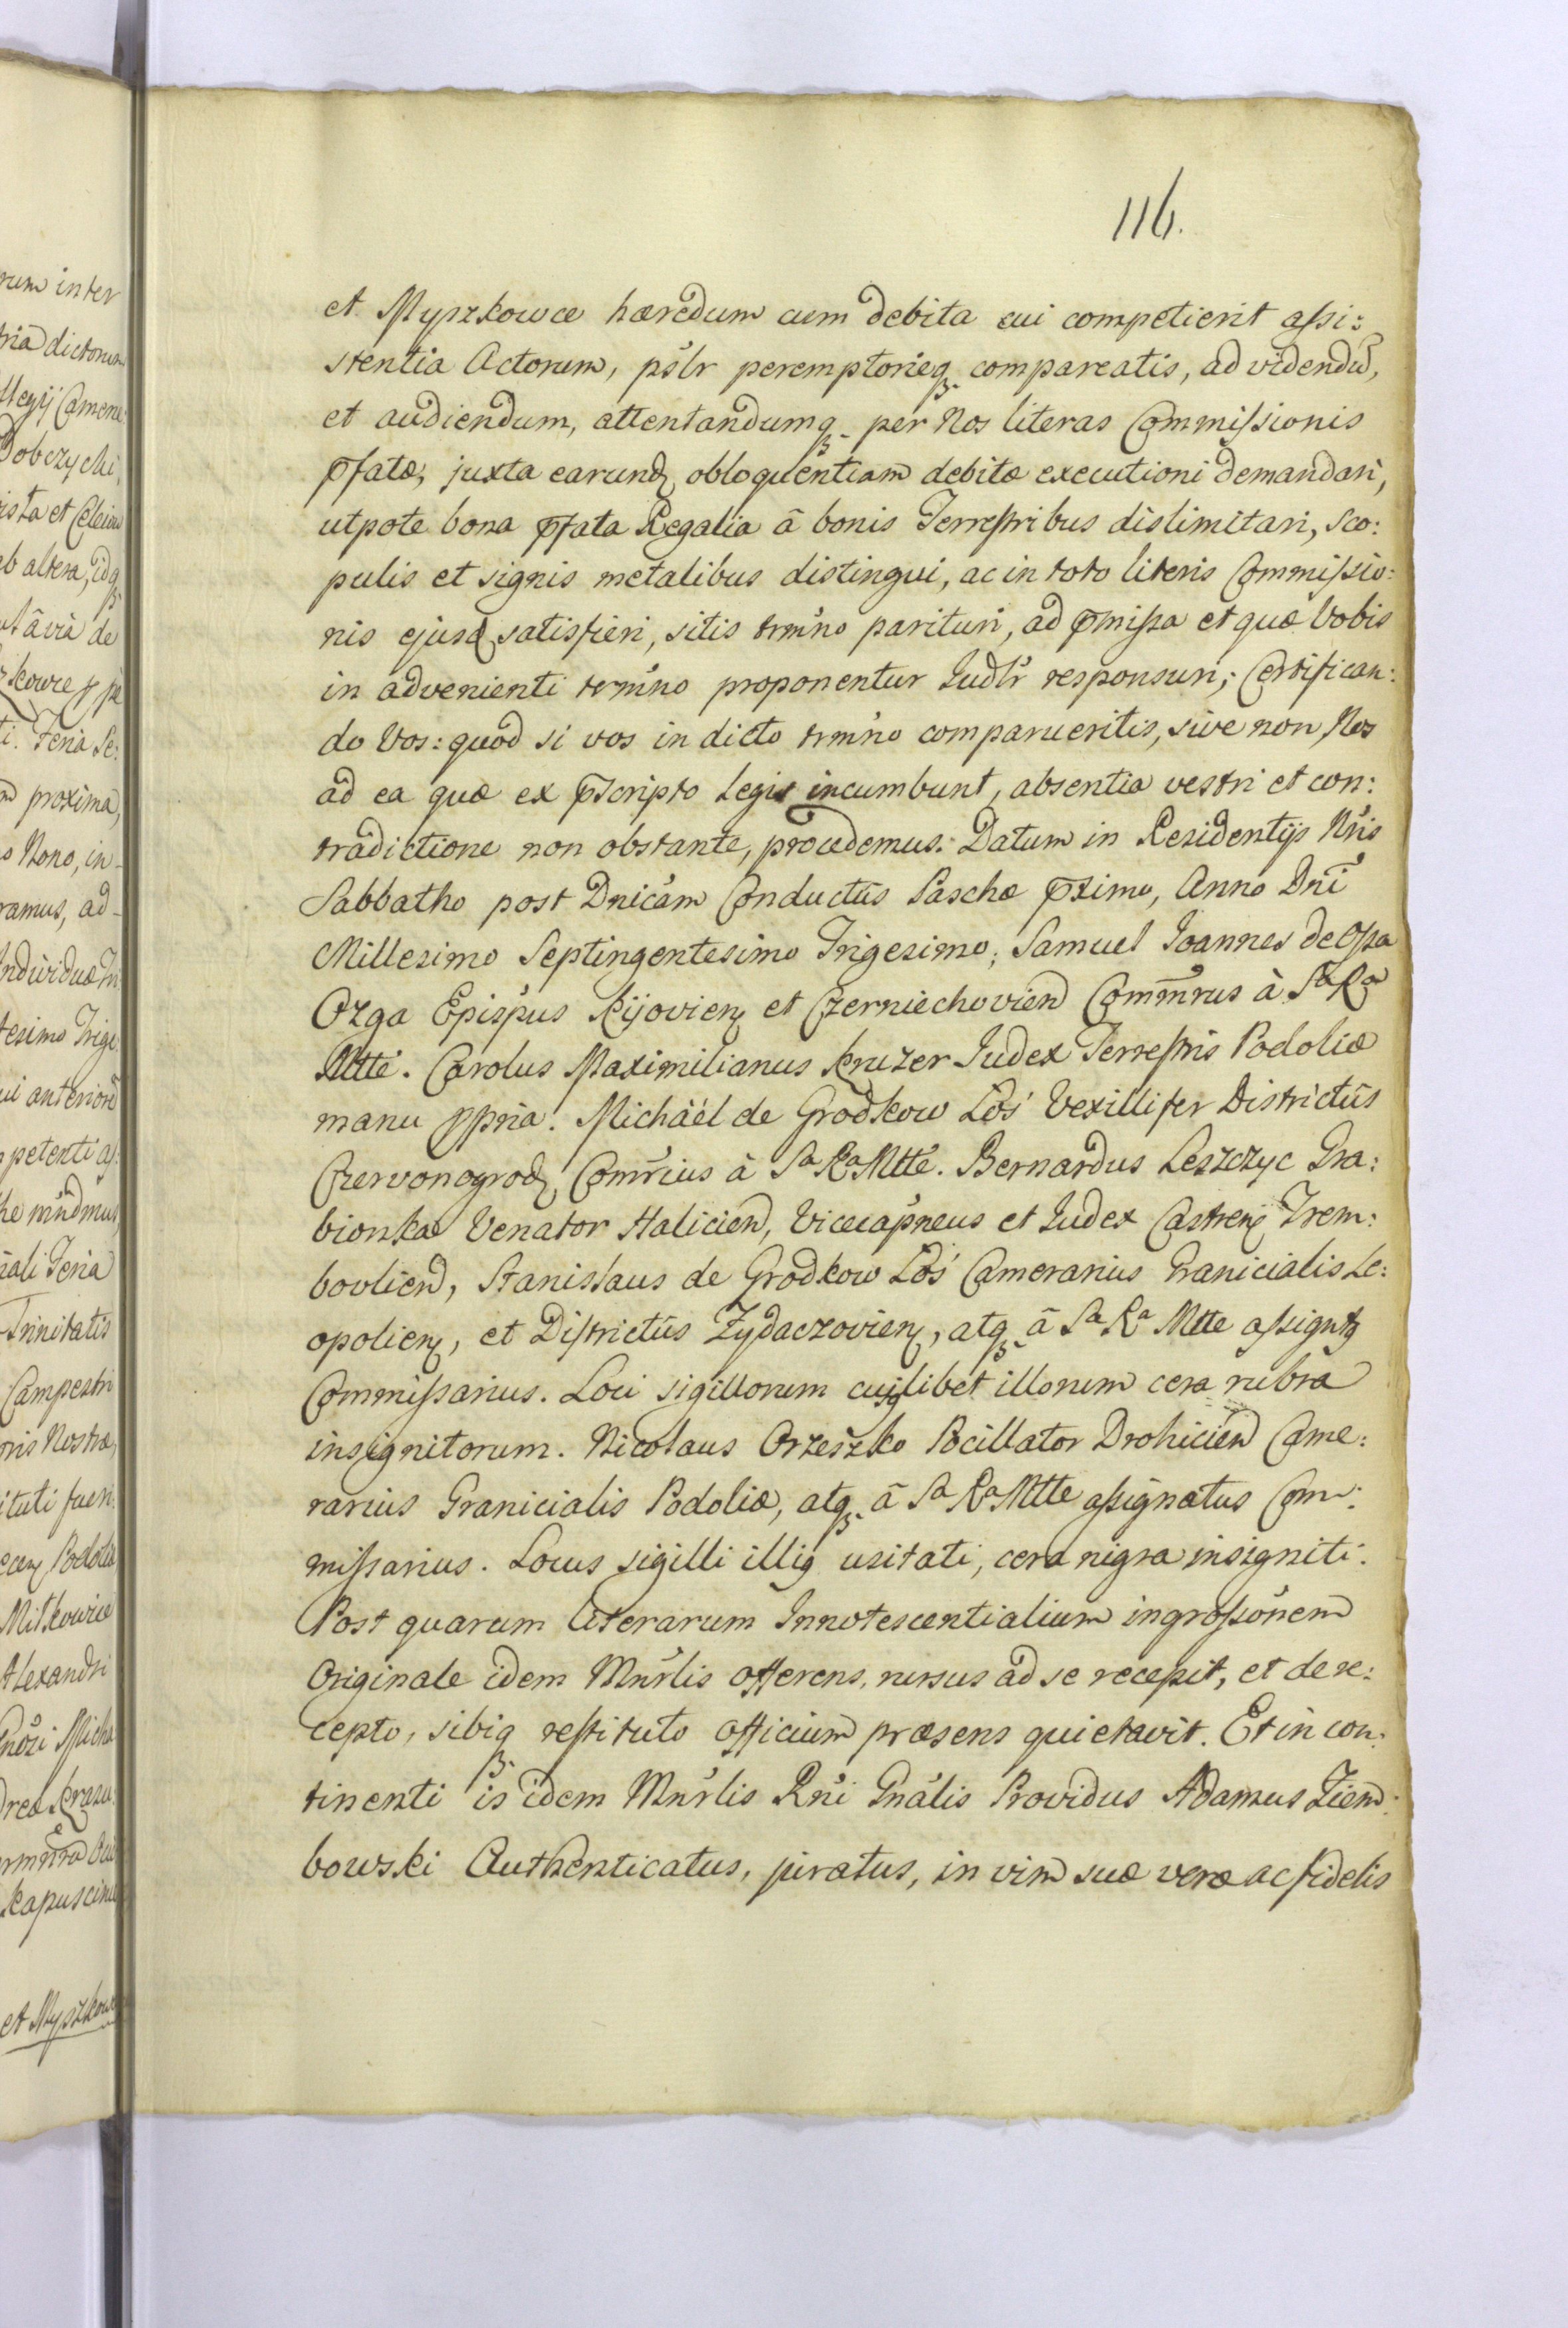 116.
et Myszkowce hæredum cum debita cui competierit assi:
stentia Actorum, pslr peremptorieq. compareatis, ad videndū,
et audiendum, attentandumq. per Nos literas Commissionis
p̄fatæ, juxta earund, obloquentiam debitæ executioni demandari,
utpote bona p̄fata Regalia â bonis Terrestribus dislimitari, sco:
pulis et signis metalibus distingui, ac in toto literis Commissio:
nis ejusd satisfieri, sitis trm̄no parituri, ad p̄missa et quæ Vobis
in advenienti trm̄no proponentur Judlr responsuri; Certifican:
do Vos: quod si vos in dicto trm̄no comparueritis, sive non, Nos
ad ea quæ ex p̄scripto Legis incumbunt, absentia vestri et con:
tradictione non obstante, procedemus. Datum in Residentijs Nr̄is
Sabbatho post Dnicam Conductûs Paschæ p̄ximo, Anno Dnī
Millesimo Septingentesimo Trigesimo; Samuel Joannes de Ossa
Ozga Epispus Kijovien et Czerniechovien Comm̄rus à Sa Ra
Mtte. Carolus Maximilianus Kruzer Judex Terrestris Podoliæ
manu ppria. Michäél de Grodkow Łoś Vexillifer Districtûs
Czervonogrod, Comr̄ius à Sa Ra Mtte. Bernardus Leszczyc Gra:
bionka Venator Halicien, Vicecapneus et Judex Castren Trem:
bovlien, Stanislaus de Grodkow Łoś Camerarius Granicialis Le:
opolien, et Districtûs Zydaczovien, atq. â Sa Ra Mtte assignts
Commissarius. Loci sigillorum cujslibet illorum cera rubra
insignitorum. Nicolaus Orzeszko Pocillator Drohicien Came:
rarius Granicialis Podoliæ, atq. â Sa Ra Mtte assignatus Com:
missarius. Locus sigilli illig usitati, cera nigra insigniti.
Post quarum literarum Innotescentialium ingrossōnem
Originale idem Mnrlis offerens, rursus ad se recepit, et de re:
cepto, sibiq. restituto Officium præsens quietavit. Et in con:
tinenti is idem Mnrlis Rni Gnalis Providus Adamus Ziem:
bowski Authenticatus, juratus, in vim suæ veræ ac fidelis